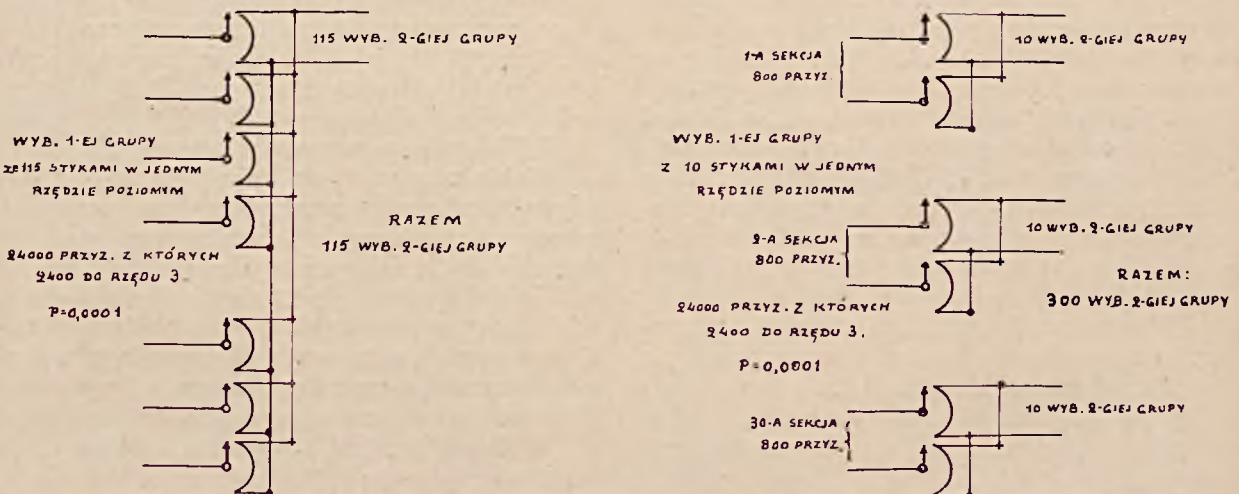 115 WYB. 2-GIEJ GRUPY
WYB. 1-EJ GRUPY
ZE 115 STYKAMI W JEDNYM
RZĘDZIE POZIOMYM
RAZEM
115 WYB. 2-GIEJ GRUPY
24000 PRZYZ. Z KTÓRYCH
2400 DO RZĘDU 3.
P=0,0001
1-A SEKCJA
800 PRZYZ.
10 WYB. 2-GIEJ GRUPY
WYB. 1-EJ GRUPY
Z 10 STYKAMI W JEDNYM
RZĘDZIE POZIOMYM
2-A SEKCJA
800 PRZYZ.
10 WYB. 2-GIEJ GRUPY
RAZEM:
300 WYB. 2-GIEJ GRUPY
24000 PRZYZ. Z KTÓRYCH
2400 DO RZĘDU 3.
P=0,0001
30-A SEKCJA
800 PRZYZ.
10 WYB. 2-GIEJ GRUPY